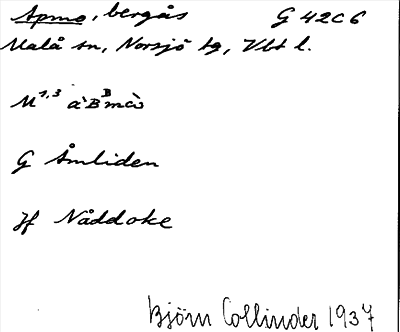 Apmo, bergås G 42C6
Malå sn, Norsjö tg, Vbt l.
M 1,3 àBᴮmȯ̀
G Åmliden
Jf Nåddoke
Björn Collinder 1937